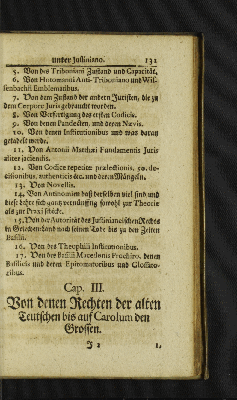 unter Justiniano. 131
5. Von des Triboniani Zustand und Capacität.
6. Von Hotomanni Anti-Triboniano und Wis-
senbachii Emblematibus.
7. Von dem Zustand der andern Juristen, die zu
dem Corpore Juris gebraucht worden.
8. Von Verfertigung des ersten Codicis.
9. Von denen Pandecten, und deren Nævis.
10. Von denen Institutionibus und was daran
getadelt werde.
11. Von Antonii Matthæi Fundamentis Juris
aliter jaciendis.
12. Von Codice repetitæ prælectionis, 50. de-
cisionibus, authenticis &c. und deren Mängeln.
13. Von Novellis.
14. Von Antinomien daß derselben viel sind und
diese dahero sich gantz vernünfftig sowohl zur Theorie
als zur Praxi schickt.
15. Von der Autorität des Justinianeischen Rechts
in Griechenland nach seinem Tode bis zu den Zeiten
Basilii.
16. Von des Theophili Institutionibus.
17. Von des Basilii Macedonis Prochiro, denen
Basilicis und deren Epitomatoribus und Glossato-
ribus.
Cap. III.
Von denen Rechten der alten
Teutschen bis auf Carolum den
Grossen.
J 2 1.